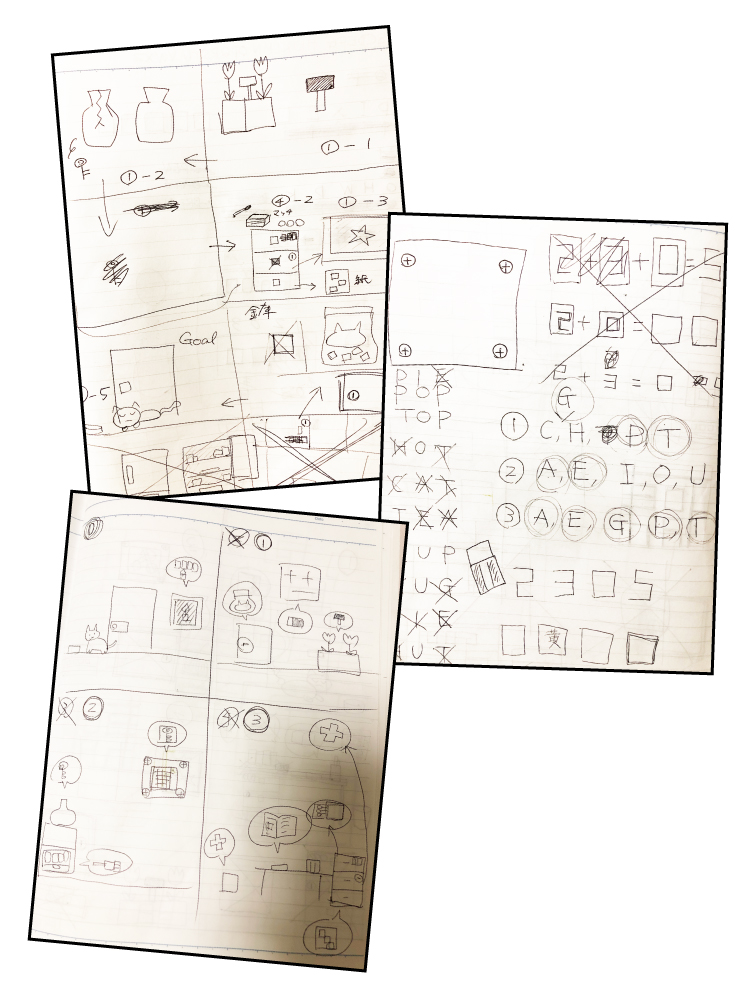 ①-1
①-2
④-2 ①-3
2×4
①
紙
金庫
Goal
-5
①
2 + 3 + 0 =
2 + 0 =
+ 3 =
G
P I E
P O P
T O P
H O T
C A T
T E A
U P
U G
E
U T
① C, H, P, T
② A, E, I, O, U
③ A, E, G, P, T
2 3 0 5
黄
①
①
②
③